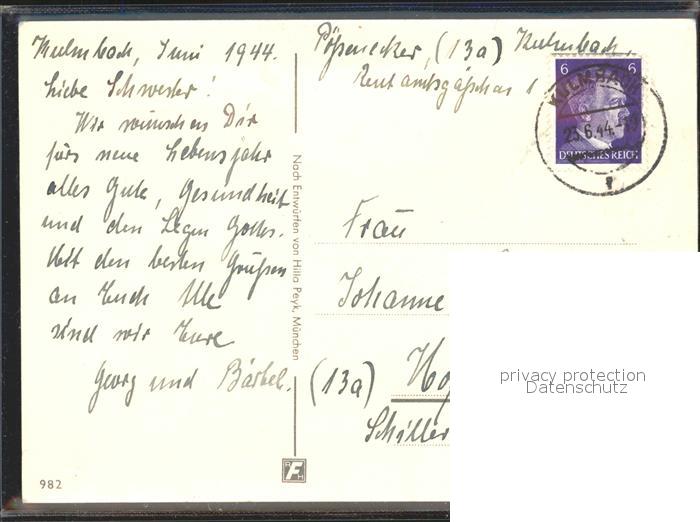 Kulmbach, Juni 1944.
Liebe Schwester!
Wir wünschen Dir
fürs neue Lebensjahr
alles Gute, Gesundheit
und den Segen Gottes.
Mit den besten Grüßen
an Euch Alle
sind wir Eure
Georg und Bärbel.
982
Nach Entwürfen von Hilla Peyk, München
Pößenecker, (13a) Kulmbach,
6 6
KULMBACH
23.6.44
DEUTSCHES REICH
Frau
Johanne
(13a)
Schiller
privacy protection
Datenschutz